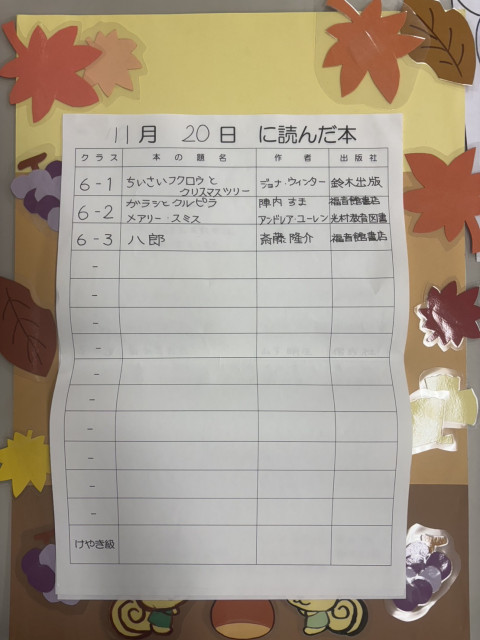 11月 20日 に読んだ本
クラス 本の題名 作者 出版社
6-1 ちいさいフクロウと クリスマスツリー ジョナ・ウィンター 鈴木出版
6-2 ガラッとクルピラ 陣内すま 福音館書店
メアリー・スミス アンドレア・ユーレン 光村教育図書
6-3 八郎 斎藤隆介 福音館書店
-
-
-
-
-
-
-
-
-
-
けやき級